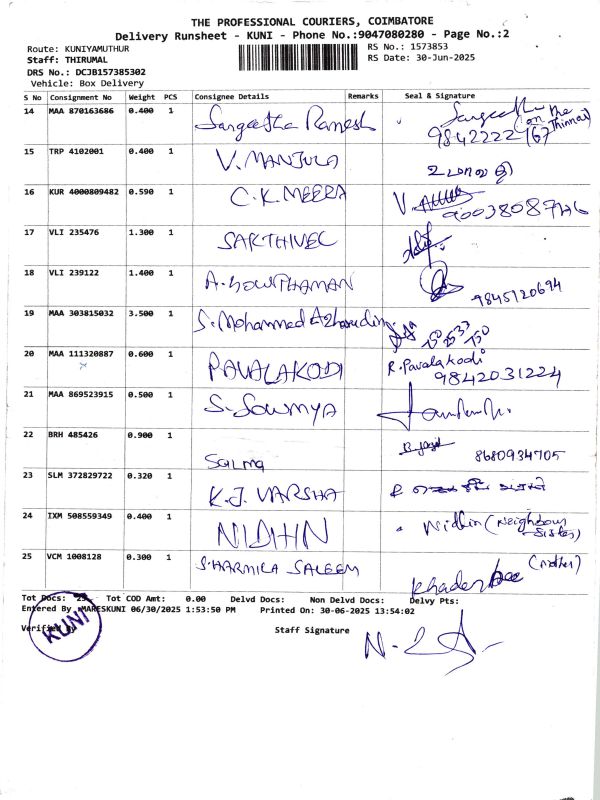 THE PROFESSIONAL COURIERS, COIMBATORE
Delivery Runsheet - KUNI - Phone No.:9047080280 - Page No.:2
Route: KUNIYAMUTHUR
RS No.: 1573853
Staff: THIRUMAL
RS Date: 30-Jun-2025
DRS No.: DCJB157385302
Vehicle: Box Delivery
S No Consignment No Weight PCS Consignee Details Remarks Seal & Signature
14 MAA 870163686 0.400 1 Sangeetha Ramesh
on the Thinnai
9842222167
15 TRP 4102001 0.400 1 V. MANJULA
16 KUR 4000809482 0.590 1 C.K. MEERA
17 VLI 235476 1.300 1 SAKTHIVEL
18 VLI 239122 1.400 1 A. GOWTHAMAN
9845120694
19 MAA 303815032 3.500 1 S. Mohammed Azharudin
20 MAA 111320887 0.600 1 PAVALAKODI R. Pavalakodi
9842031224
21 MAA 869523915 0.500 1 S. Sowmya
22 BRH 485426 0.900 1 Salma 8680934705
23 SLM 372829722 0.320 1 K.J. VARSHA
24 IXM 508559349 0.400 1 NIDHIN Nidhin (Neighbour Sister)
25 VCM 1008128 0.300 1 SHARMILA SALEEM (mother)
Khader bee
Tot Docs: 25 Tot COD Amt: 0.00 Delvd Docs: Non Delvd Docs: Delvy Pts:
Entered By MARESKUNI 06/30/2025 1:53:50 PM Printed On: 30-06-2025 13:54:02
Verified By Staff Signature
KUNI